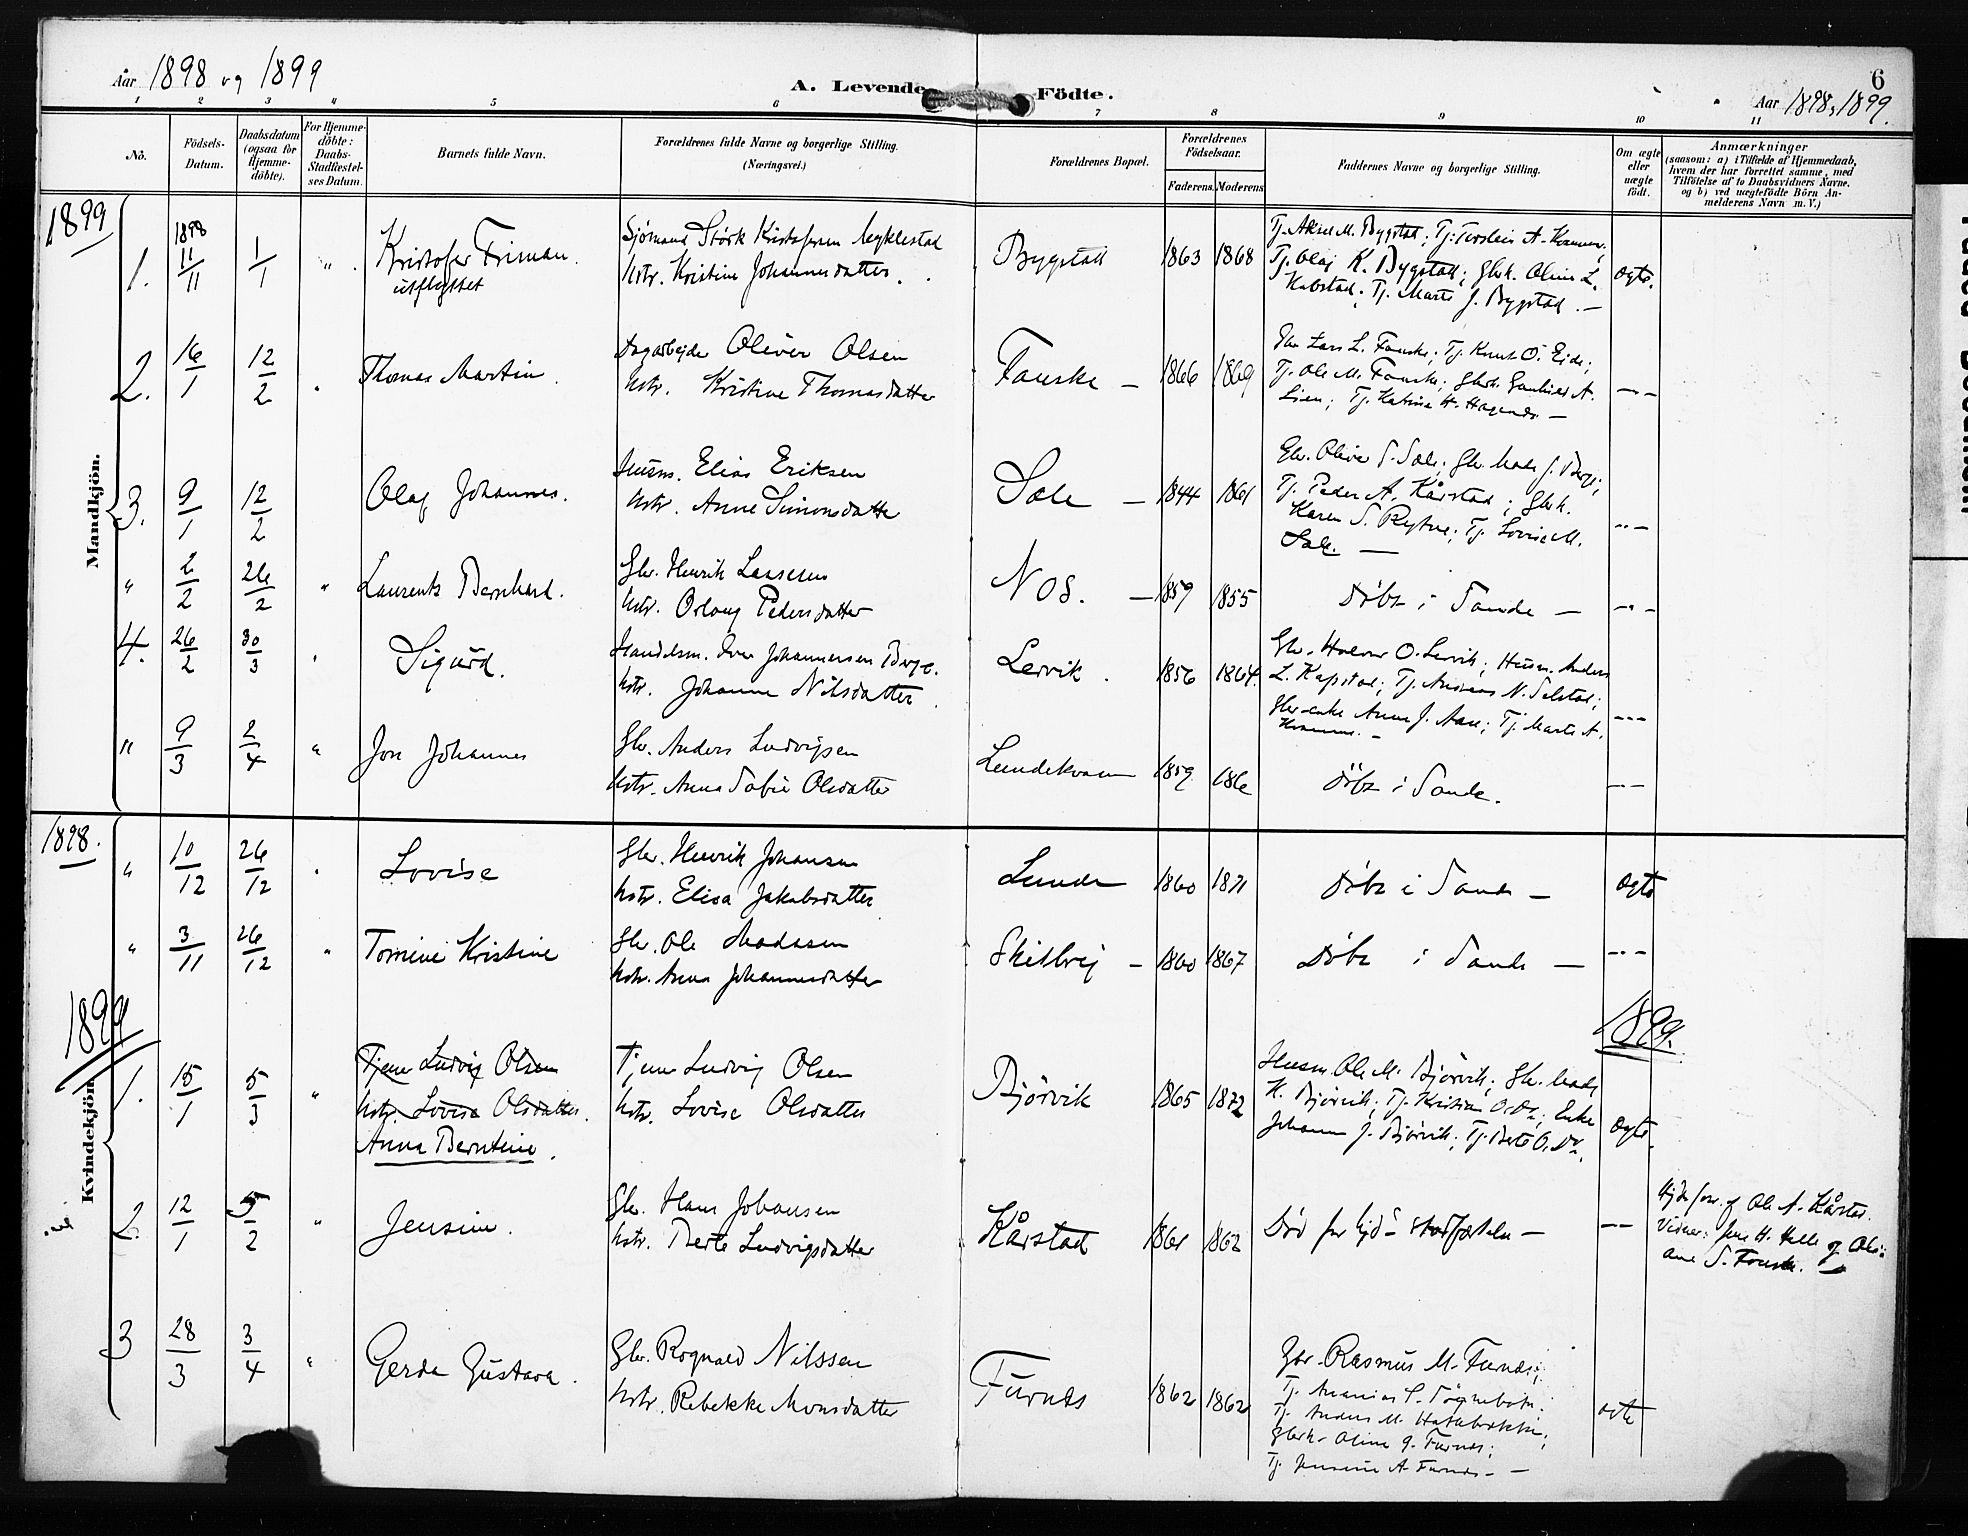 Aar 1898 og 1899
A. Levende Födte.
6
Aar 1898, 1899.
1 2 3 4 5 6 7 8 9 10 11
No.
Födsels-Datum.
Daabsdatum (ogsaa for Hjemme-döbte).
For Hjemme-döbte: Daabs-Stadfæstel-ses Datum.
Barnets fulde Navn.
Forældrenes fulde Navne og borgerlige Stilling.
(Næringsvei.)
Forældrenes Bopæl.
Forældrenes Födselsaar.
Faderens. Moderens
Faddernes Navne og borgerlige Stilling.
Om ægte eller uægte födt.
Anmærkninger
(saasom: a) i Tilfælde af Hjemmedaab,
hvem der har forrettet samme, med
Tilföielse af to Daabsvidners Navne.
og b) ved uegtefödte Börn An-
melderens Navn m. V.)
1899
Mandkjön.
1. 1898 11/11 1/1 " Kristofer Friman. utflyttet
Sjömand Störk Kristofersen Myklestad
Kstr. Kristine Johannesdatter.
Bygstad 1863 1868
Tj. Aksel M. Bygstad; Tj. Torstein A. Kvamme;
Tj. Olaf K. Bygstad; Gbrh. Oline L.
Kabstad; Tj. Marte J. Bygstad. —
ægte.
2. 16/1 12/2 " Thomas Martin.
Dagarbejder Oliver Olsen
Kstr. Kristine Thomasdatter
Fauske — 1866 1869
Gbr Lars L. Fauske; Tj. Knut O. Eide;
Tj. Ole M. Fauske; Gbrh. A.
Lien; Tj. Katrine H. —
—"—
3. 9/1 12/2 Olaf Johannes.
Husm. Elias Eriksen
Kstr. Anne Simonsdatter
Sæle — 1844 1861
Gbr. Oliver S. Sæle; Gbr. Mads J. Berge;
Tj. Peder A. Kårstad; Gbrh.
Karen S. Rytne; Tj. Lovise M.
Sæle. —
—"—
" 2/2 26/2 " Laurents Bernhard.
Gbr. Henrik Lassesen
Kstr. Orlaug Pedersdatter
Nos. — 1859 1855
Döbt i Sande —
—"—
4. 26/2 30/3 " Sigurd.
Handelsm. Iver Johannessen Berge.
Kstr. Johanne Nilsdatter.
Lervik. 1856 1864.
Gbr. Halvor O. Lervik; Husm. Anders
L. Kapstad; Tj. Andreas N. Selstad;
Gbr-enke Anne J. Aase; Tj. Marte A.
Kvamme. —
—"—
" 9/3 2/4 " Jon Johannes
Gbr. Anders Ludvigsen
Kstr. Anna Sofie Olsdatter
Lundekvam 1859 186
Döbt i Sande.
—"—
1898.
" 10/12 26/12 " Lovise
Gbr. Henrik Johansen
Kstr. Elisa Jakobsdatter
Lunde 1860 1871
Döbt i Sande —
ægte
" 3/11 26/12 " Tomine Kristine
Gbr. Ole Madssen
Kstr. Anna Johannesdatter
Skilbrej — 1860 1867
Döbt i Sande —
—"—
1899
1899.
Kvindekjön
1. 15/1 5/3 " Tjener Ludvig Olsen
Kstr. Lovise Olsdatter.
Anna Berntine.
Tjener Ludvig Olsen
Kstr. Lovise Olsdatter
Bjørvik 1865 1872
Husm. Ole M. Bjørvik; Gbr. Mads
K. Bjørvik; Tj. Kristian O. Do; Enke
Johanne J. Bjørvik; Tj. Berte O. Do.
ægte.
2. 12/1 5/2 " Jensine.
Gbr. Hans Johansen
Kstr. Berte Ludvigsdatter
Kårstad 1861 1862
Död før Hjd - stadfæstelse —
—"—
Hjdb forr. af Ole A. Kårstad.
Vidner: Jens H. Helle og Olai-
ane S. Fauske.
3 28/3 3/4 " Gerda Gustava.
Gbr. Rognald Nilssen
Kstr. Rebekke Monsdatter
Furnes 1862 1862
Gbr. Rasmus M. Furnes;
Tj. Ananias S.
Tj. Anders M. Hatlebrekke;
Gbrh. Oline G. Furnes;
Tj. Jensine A. Furnes. —
ægte